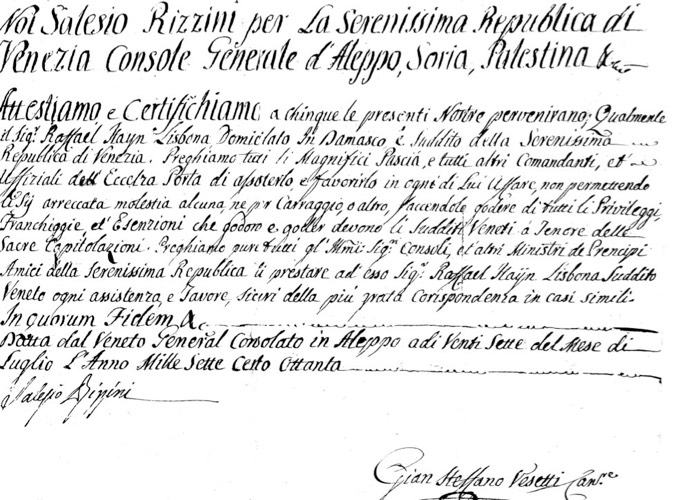 Noi Salesio Rizzini per La Serenissima Republica di
Venezia Console Generale d'Aleppo, Soria, Palestina &.
Attestiamo, e Certifichiamo a chinque le presenti Nostre pervenirano; Qualmente
il Sigr. Raffael Haÿn Lisbona Domiciato In Damasco è Suddito della Serenissima
Republica di Venezia. Preghiamo tutti li Magnifici Pascià, e tutti altri Comandanti, et
Uffiziali dell'Eccelza Porta di assisterlo, e favorirlo in ogni di Lui Affare, non permettendo
Sij arreccata molestia alcuna, ne pr Carraggio, o altro, faccendole godere di tutti li Privileggi,
Franchiggie, ed Esenzioni che godono e goder devono li Sudditi Veneti à Tenore delle
Sacre Capitolazioni. Preghiamo pure tutti gl' Sigri. Consoli, et altri Ministri de Prencipi
Amici della Serenissima Republica li prestare ad esso Sigr. Raffael Haÿn Lisbona Suddito
Veneto ogni assistenza, e Favore, sicuri della più grata Corispondenza in casi simili.
In quorum Fidem &.
Datta dal Veneto General Consolato in Aleppo adi Venti Sette del Mese di
Luglio L'Anno Mille Sette Cento Ottanta
Salesio Rizzini
Gian Steffano Vesetti Canre